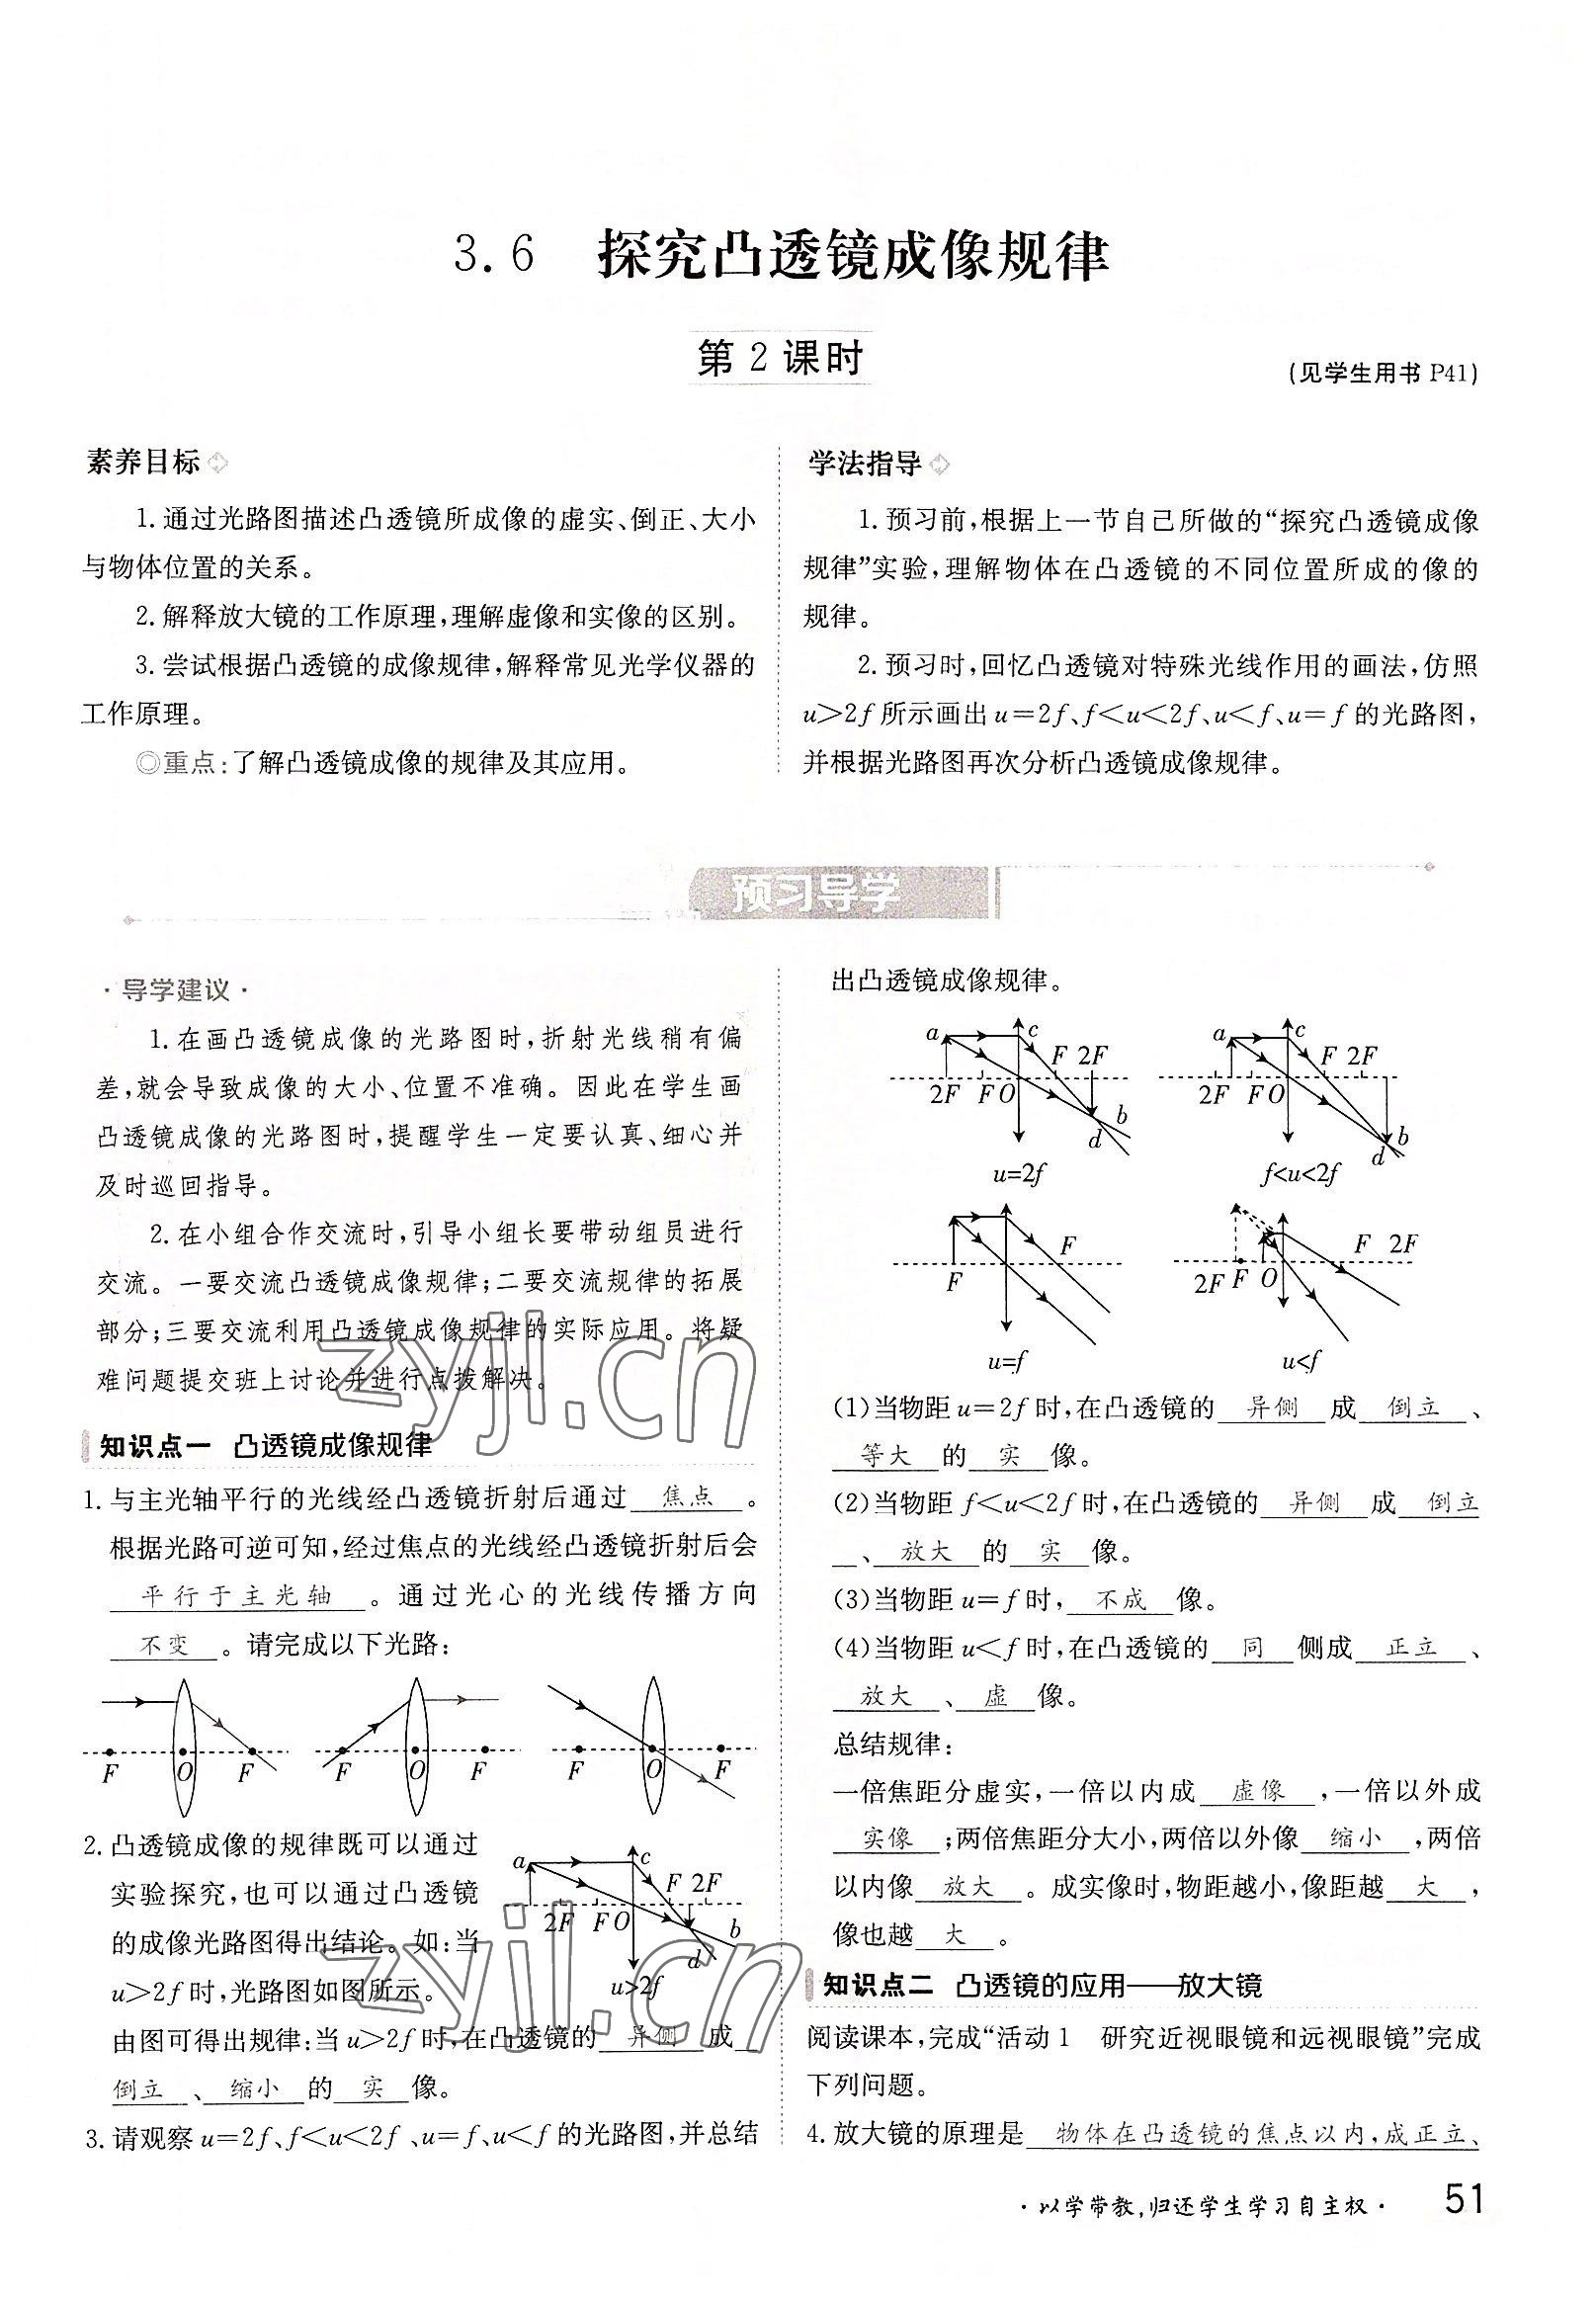 3.6　探究凸透镜成像规律
第 2 课时
(见学生用书 P41)
素养目标
1.通过光路图描述凸透镜所成像的虚实、倒正、大小
与物体位置的关系。
2.解释放大镜的工作原理,理解虚像和实像的区别。
3.尝试根据凸透镜的成像规律,解释常见光学仪器的
工作原理。
◎重点:了解凸透镜成像的规律及其应用。
学法指导
1.预习前,根据上一节自己所做的“探究凸透镜成像
规律”实验,理解物体在凸透镜的不同位置所成的像的
规律。
2.预习时,回忆凸透镜对特殊光线作用的画法,仿照
u>2f 所示画出 u=2f、f<u<2f、u<f、u=f 的光路图,
并根据光路图再次分析凸透镜成像规律。
预习导学
·导学建议·
1.在画凸透镜成像的光路图时,折射光线稍有偏
差,就会导致成像的大小、位置不准确。因此在学生画
凸透镜成像的光路图时,提醒学生一定要认真、细心并
及时巡回指导。
2.在小组合作交流时,引导小组长要带动组员进行
交流。一要交流凸透镜成像规律;二要交流规律的拓展
部分;三要交流利用凸透镜成像规律的实际应用。将疑
难问题提交班上讨论并进行点拨解决。
知识点一　凸透镜成像规律
1.与主光轴平行的光线经凸透镜折射后通过 焦点 。
根据光路可逆可知,经过焦点的光线经凸透镜折射后会
平行于主光轴 。通过光心的光线传播方向
不变 。请完成以下光路:
F O F F O F F O F
2.凸透镜成像的规律既可以通过
实验探究,也可以通过凸透镜
的成像光路图得出结论。如:当
u>2f 时,光路图如图所示。
a c F 2F
2F F O b
d
u>2f
由图可得出规律:当 u>2f 时,在凸透镜的 异侧 成
倒立 、 缩小 的 实 像。
3.请观察 u=2f、f<u<2f 、u=f、u<f 的光路图,并总结
出凸透镜成像规律。
a c F 2F
2F F O b
d
u=2f
a c F 2F
2F F O b
d
f<u<2f
F
F
u=f
F 2F
2F F O
u<f
(1)当物距 u=2f 时,在凸透镜的 异侧 成 倒立 、
等大 的 实 像。
(2)当物距 f<u<2f 时,在凸透镜的 异侧 成 倒立
、 放大 的 实 像。
(3)当物距 u=f 时, 不成 像。
(4)当物距 u<f 时,在凸透镜的 同 侧成 正立 、
放大 、 虚 像。
总结规律:
一倍焦距分虚实,一倍以内成 虚像 ,一倍以外成
实像 ;两倍焦距分大小,两倍以外像 缩小 ,两倍
以内像 放大 。成实像时,物距越小,像距越 大 ,
像也越 大 。
知识点二　凸透镜的应用——放大镜
阅读课本,完成“活动1　研究近视眼镜和远视眼镜”完成
下列问题。
4.放大镜的原理是 物体在凸透镜的焦点以内,成正立、
·以学带教,归还学生学习自主权·
51
zyjl.cn
zyjl.cn